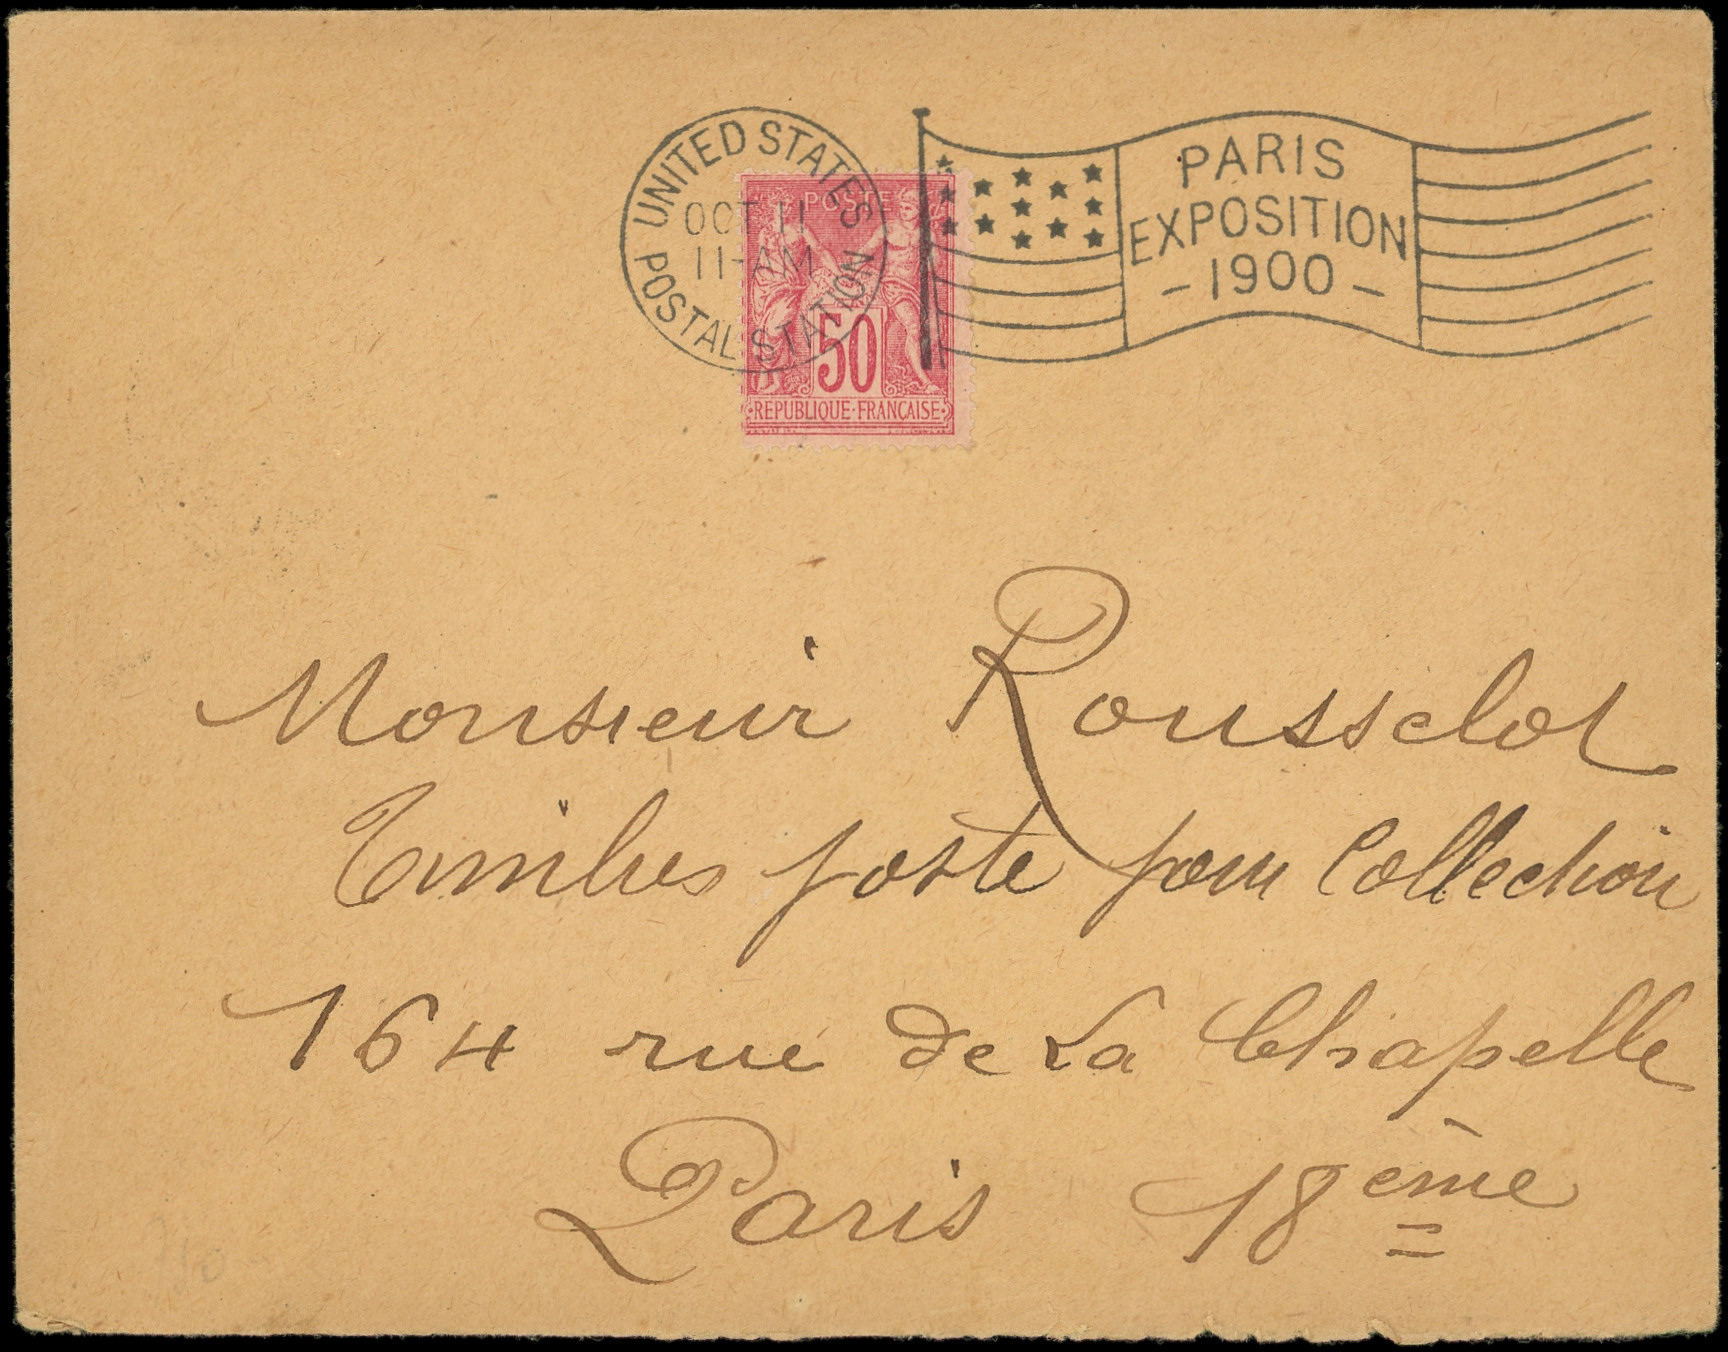 UNITED STATES POSTAL STATION
OCT 11
11-AM
PARIS
EXPOSITION
- 1900 -
POSTE
50
REPUBLIQUE·FRANÇAISE
Monsieur Rousselot
Timbres poste pour Collection
164 rue de La Chapelle
Paris 18ème